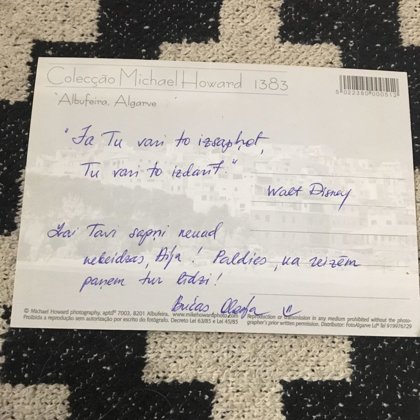 Colecção Michael Howard 1383
Albufeira, Algarve
"Ja Tu vari to izsapņot,
Tu vari to izdarīt"
Walt Disney
Lai Tavi sapņi nekad
nebeidzas, ! Paldies, ka reizēm
paņem tur līdzi!
Bučas
© Michael Howard photography, aptdº 7003, 8201 Albufeira. www.mikehowardphoto.com Reproduction or transmission in any medium prohibited without the photo-
Proibida a reprodução sem autorização por escrito do fotógrafo. Decreto Lei 63/85 e Lei 45/85 grapher's prior written permission. Distributor: FotoAlgarve Ldª Tel 919976729